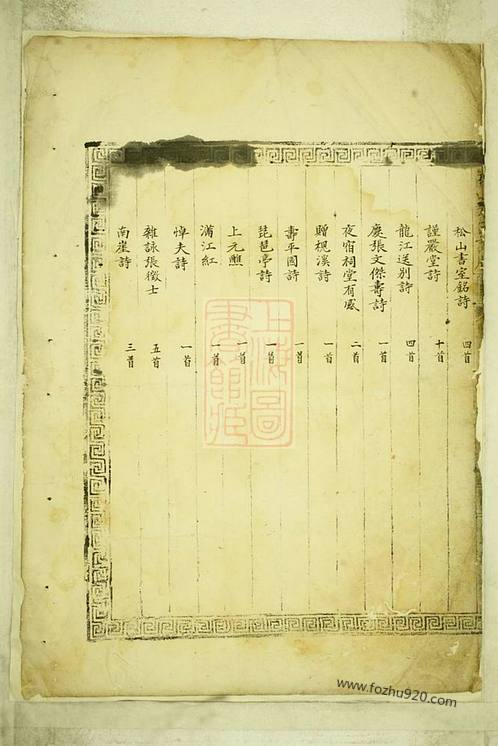 松山書室銘詩 四首
謹嚴堂詩 十首
龍江送別詩 四首
慶張文傑壽詩 一首
夜宿祠堂有感 二首
贈槐溪詩 一首
壽平國詩 一首
琵琶亭詩 一首
上元醮 一首
滿江紅 一首
悼夫詩 一首
雜詠張徵士 五首
南崖詩 三首
上海圖書館藏
www.fozhu920.com